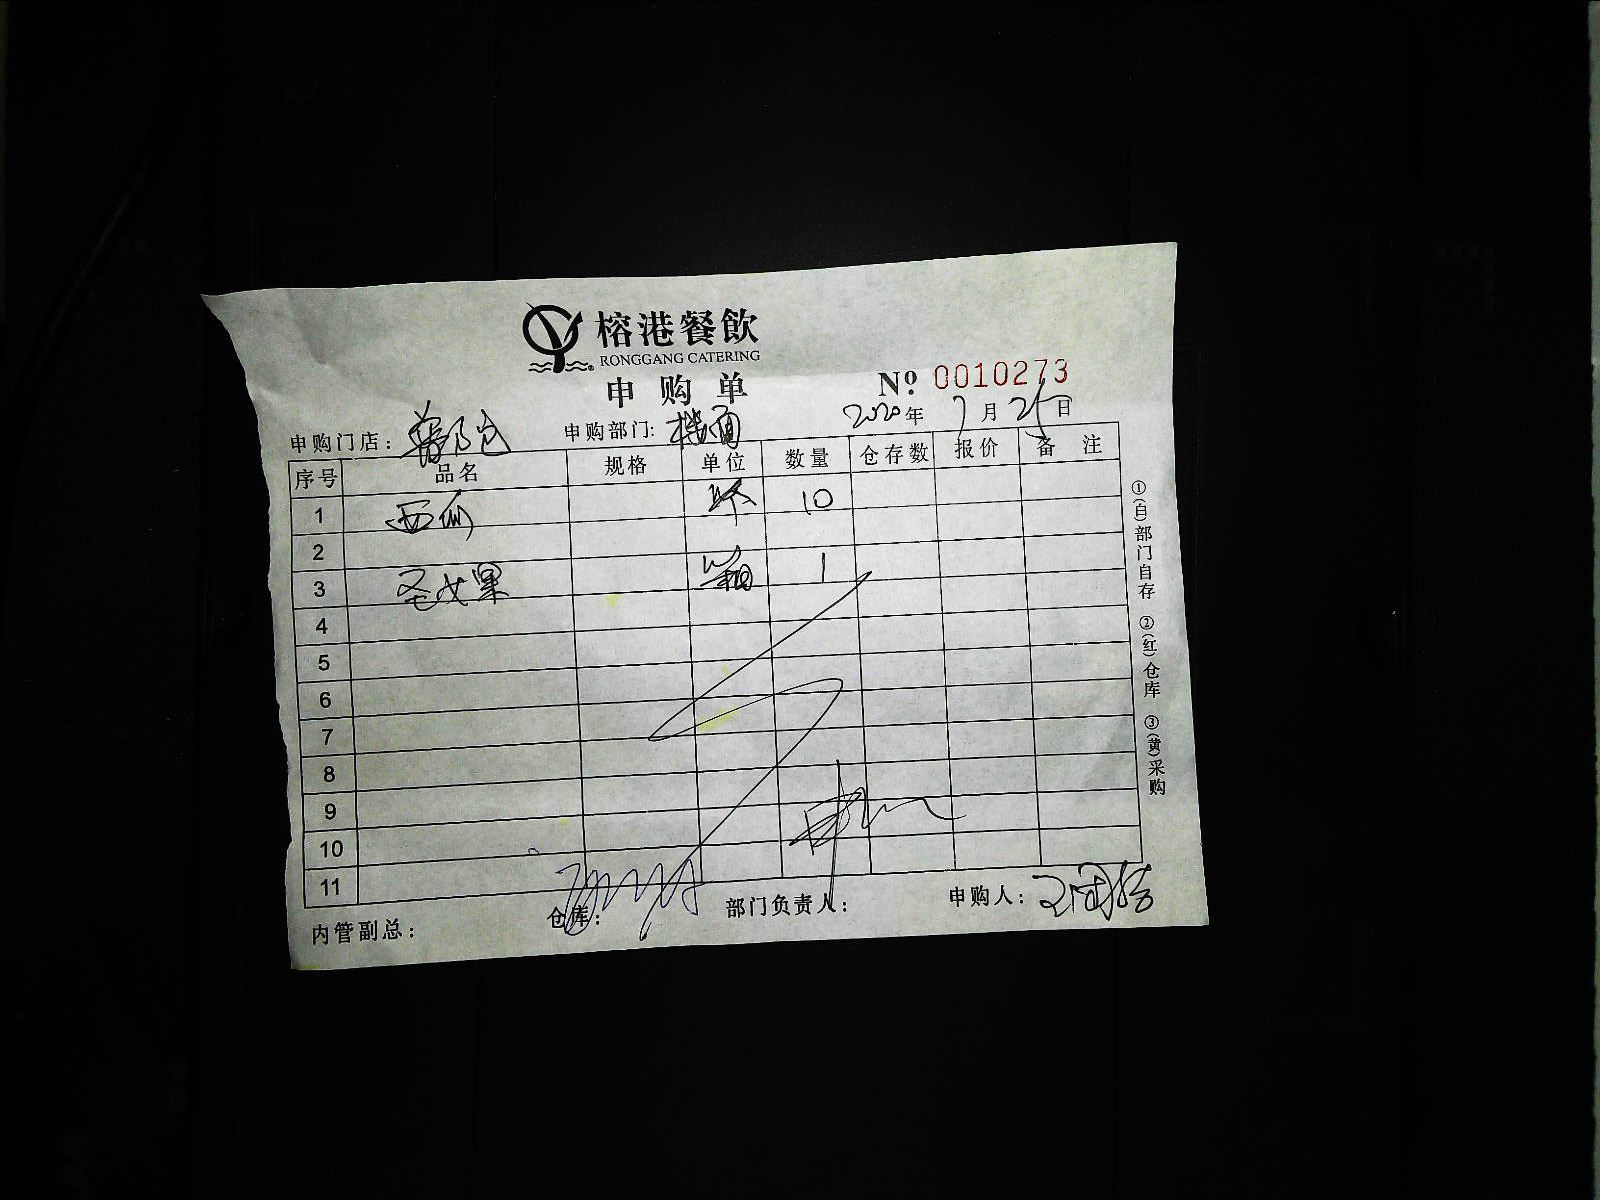 榕港餐飲
RONGGANG CATERING
申购单
№ 0010273
2020年7月25日
申购门店：
申购部门: 楼面
序号 品名 规格 单位 数量 仓存数 报价 备注
1 西瓜 个 10
2
3 圣女果 箱 1
4
5
6
7
8
9
10
11
内管副总： 仓库： 部门负责人： 申购人：
①(白)部门自存 ②(红)仓库 ③(黄)采购